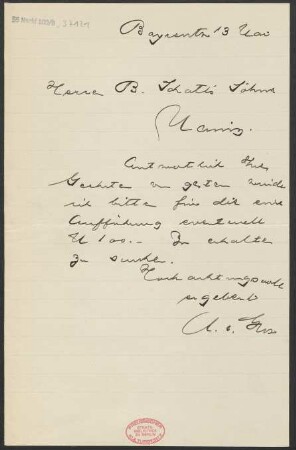 Bayreuth 13 Nov
Herren B. Schott's Söhne
Mainz.
Antwortlich Ihres
Geehrten von gestern würde
ich bitte für die erste
Aufführung eventuell
M 100.– zu erhalten
zu suchen.
Hochachtungsvoll
ergebenst